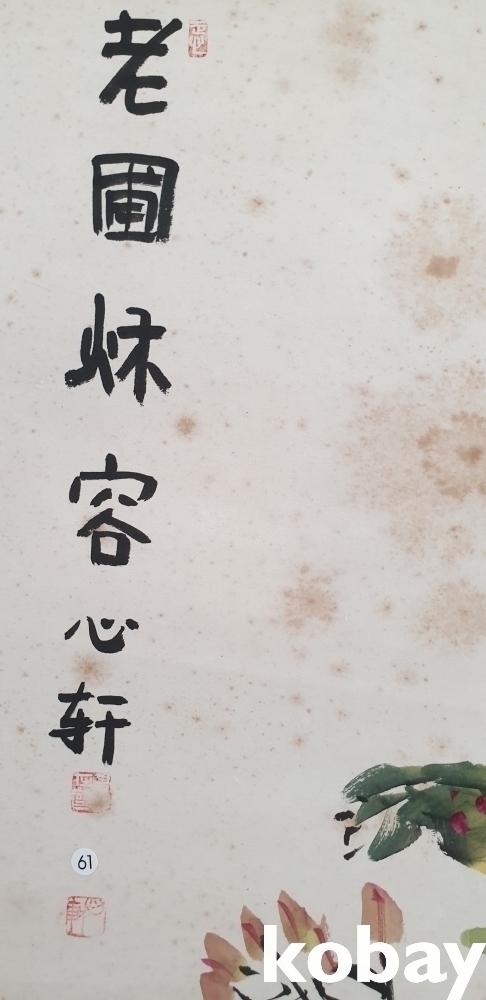 老圃秌容心轩
61
kobay